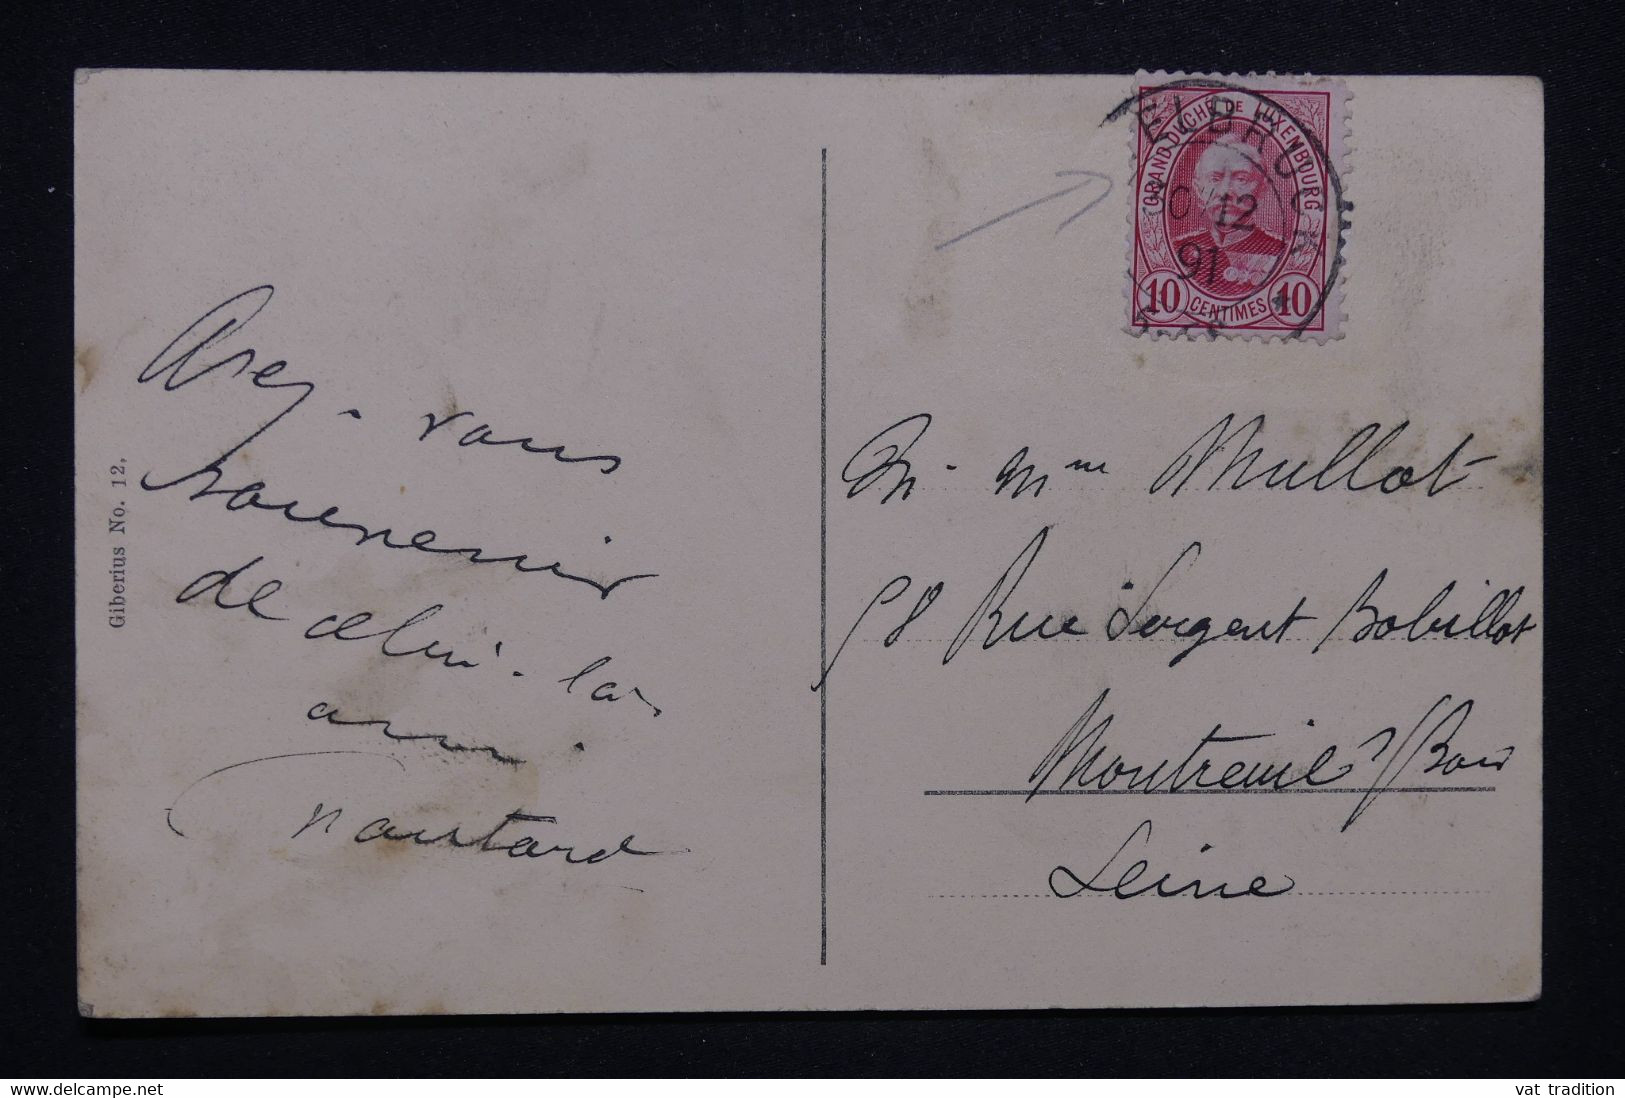 GRAND DUCHÉ DE LUXEMBOURG
10 CENTIMES 10
12
91
Avez-vous
souvenir
de celui-là
ami
M. Mme Mullot
58 Rue Sergent Bobillot
Montreuil s/Bois
Seine
Giberius No. 12.
vat tradition